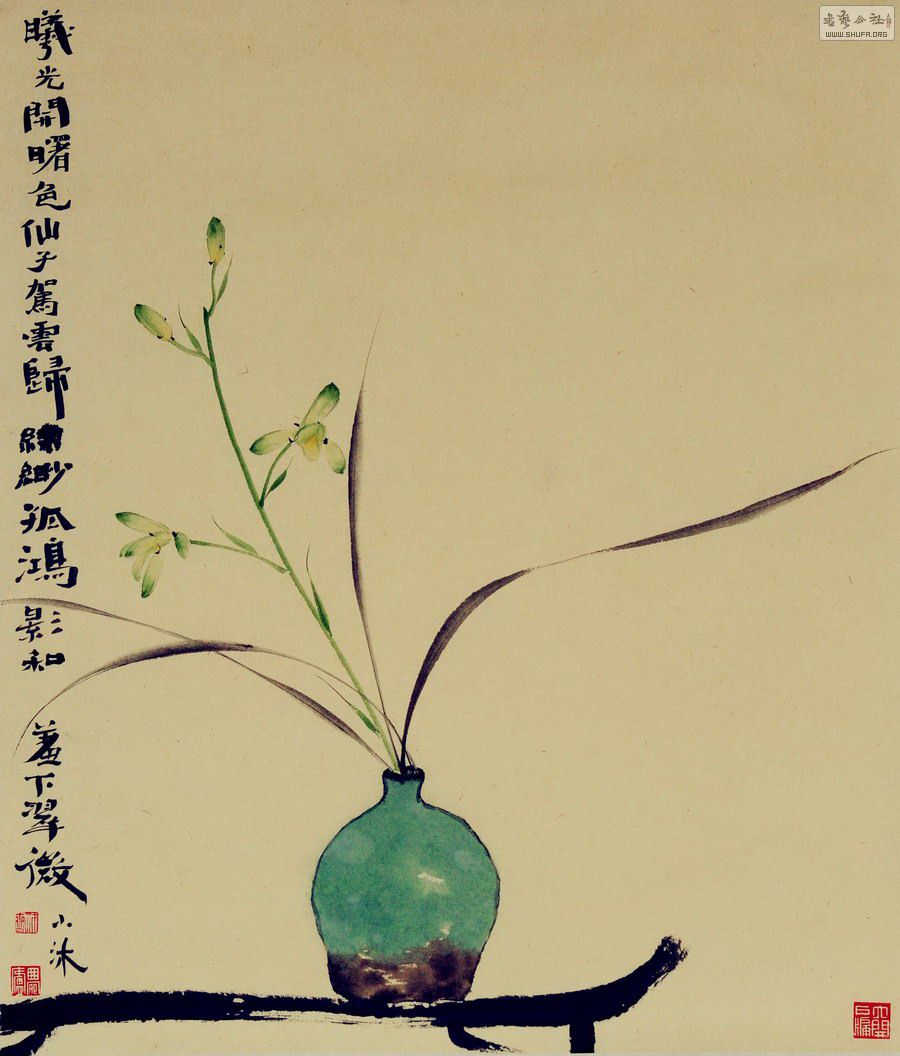 曦光開曙色仙子駕雲歸縹緲孤鴻影和羞下翠微
小沐
書藝公社
WWW.SHUFA.ORG